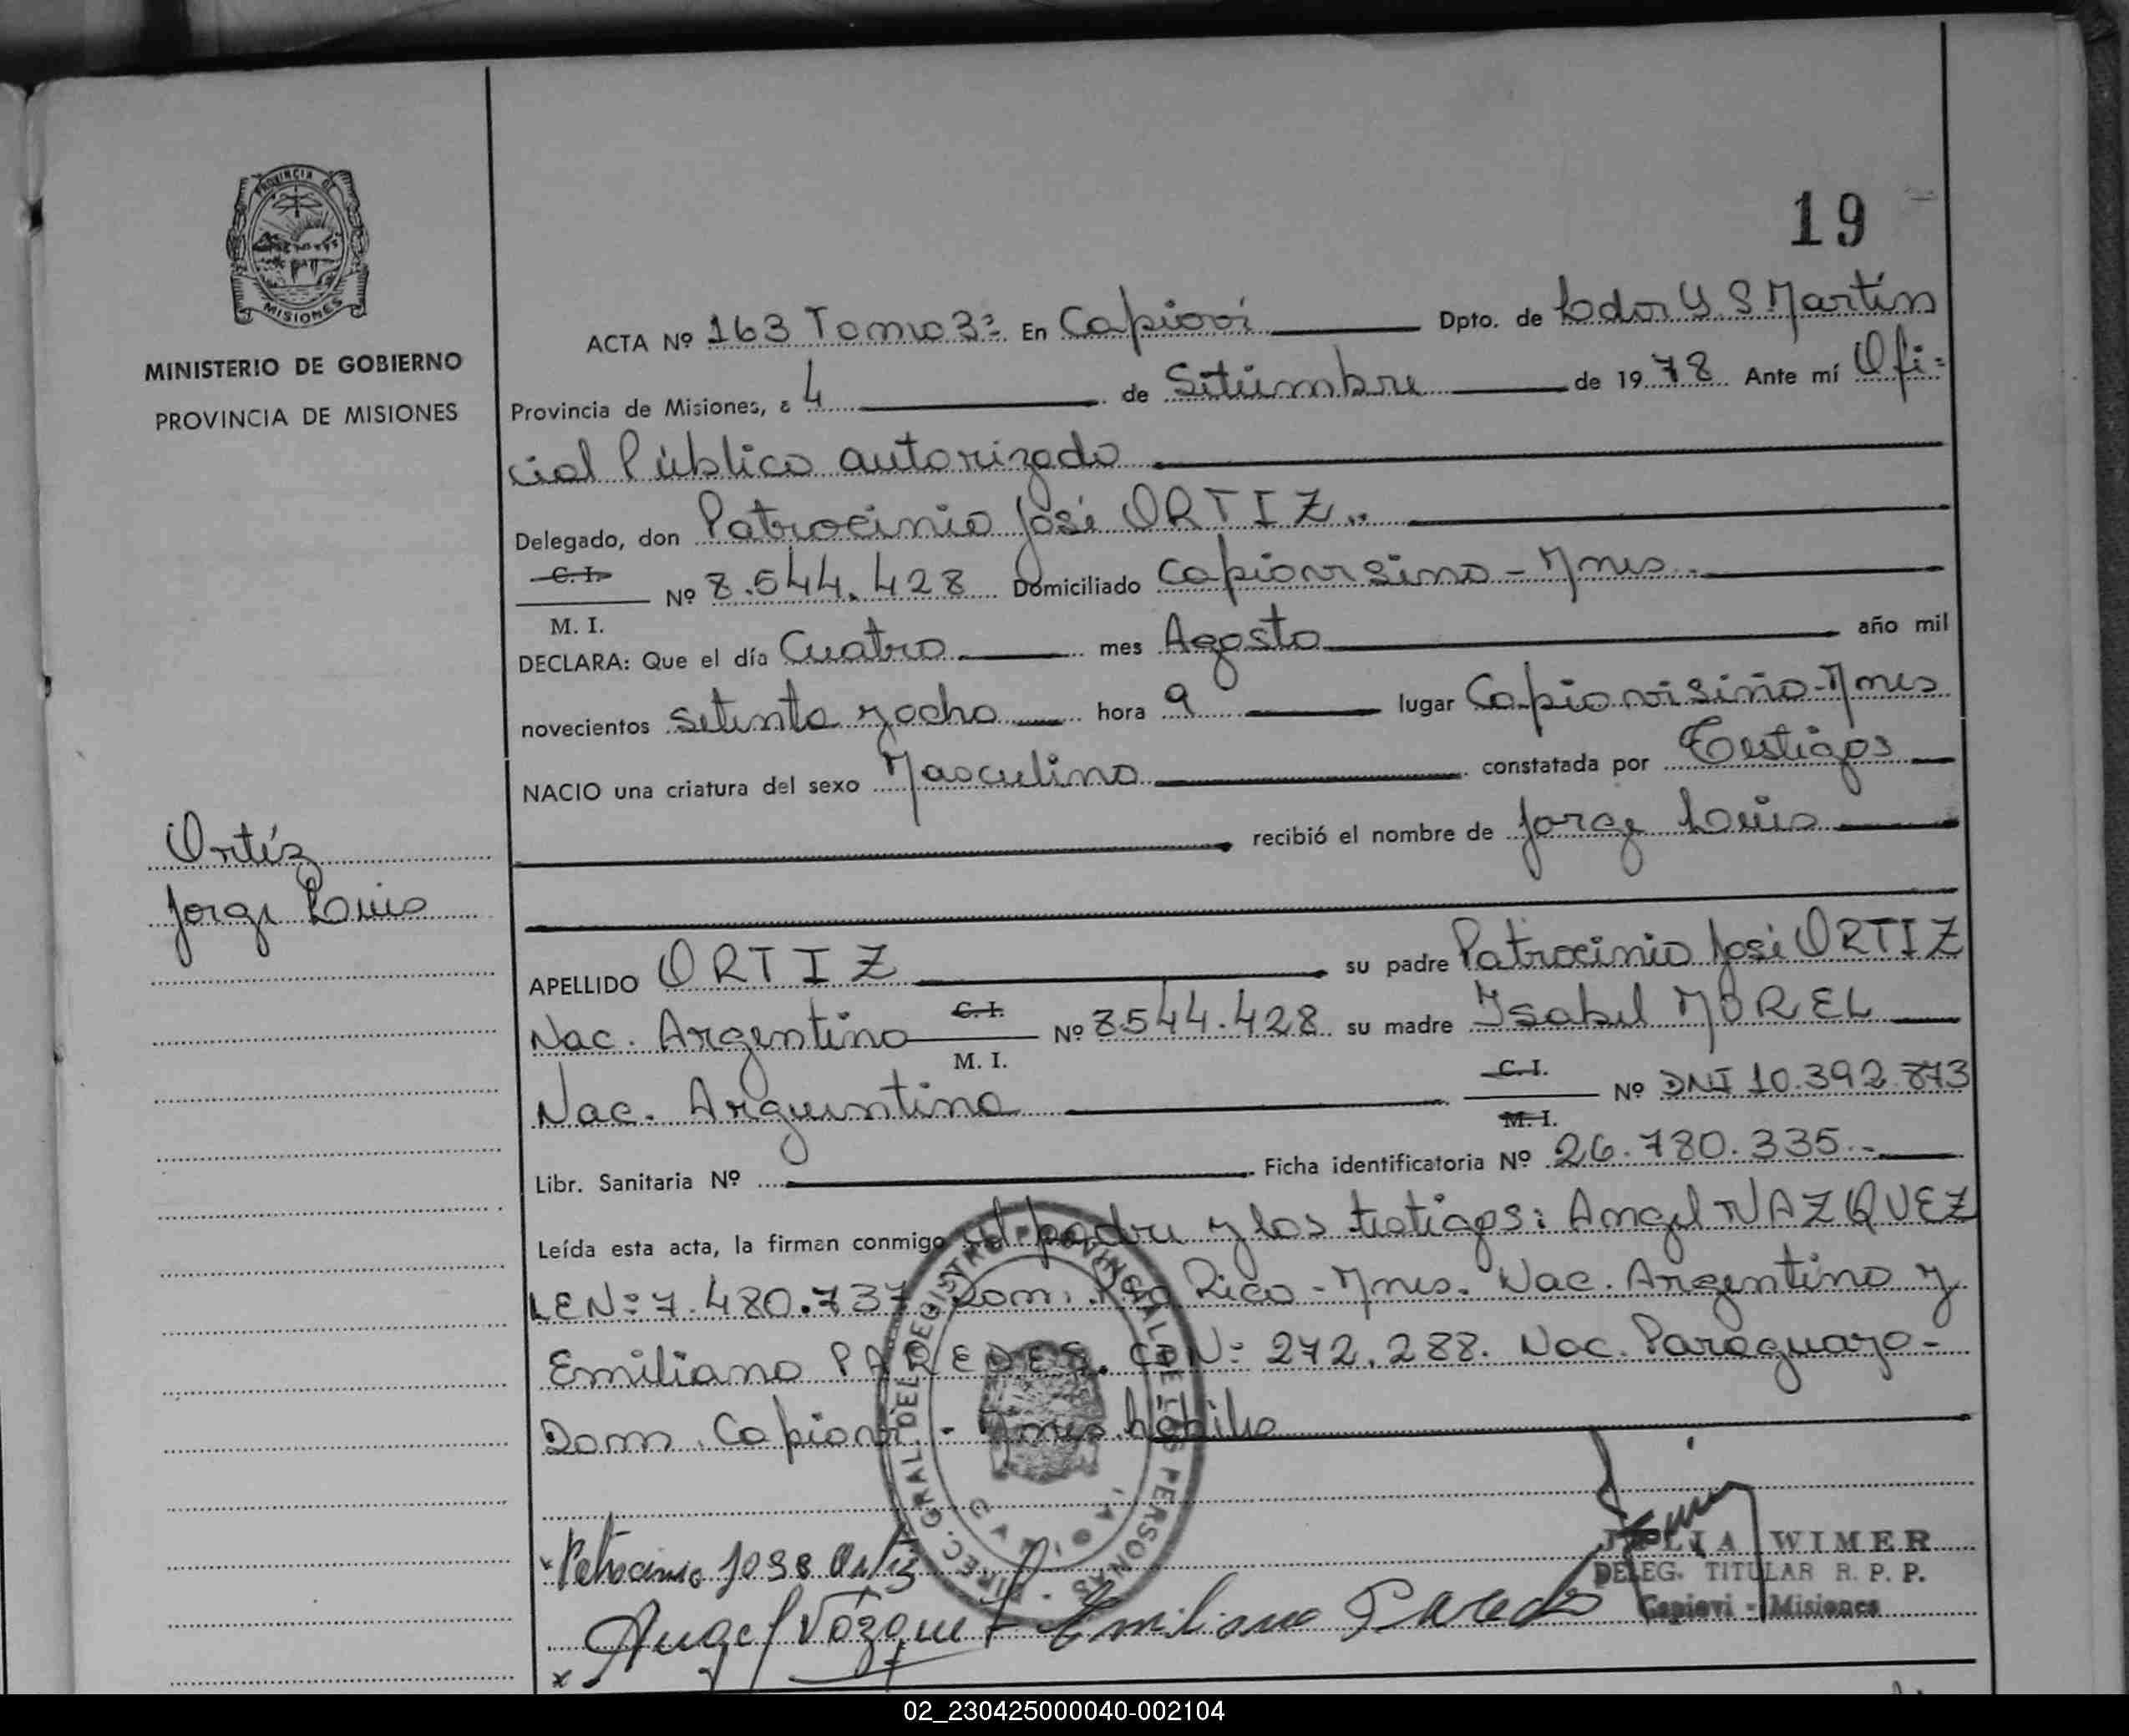 19
PROVINCIA DE
MISIONES
MINISTERIO DE GOBIERNO
PROVINCIA DE MISIONES
ACTA Nº 163 Tomo 3º En Capioví Dpto. de Lbdor G S Martín
Provincia de Misiones, a 4 de Setiembre de 1978 Ante mí Ofi=
cial Público autorizado
Delegado, don Patrocinio José ORTIZ..
C. I. Nº 8.544.428 Domiciliado Capiovisino - Mnes.
M. I.
DECLARA: Que el día Cuatro mes Agosto año mil
novecientos setenta y ocho hora 9 lugar Capiovisiño-Mnes
NACIO una criatura del sexo Masculino constatada por Testigos
recibió el nombre de Jorge Luis
Ortíz
Jorge Luis
APELLIDO ORTIZ su padre Patrocinio José ORTIZ
Nac. Argentino C. I. Nº 8544.428 su madre Isabel MOREL
M. I.
Nac. Argentina C. I. Nº DNI 10.392.873
M. I.
Libr. Sanitaria Nº Ficha identificatoria Nº 26.780.335.-
Leída esta acta, la firman conmigo el padre y los testigos: Angel VAZQUEZ
LEN: 7.480.737 Dom. Pto Rico - Mnes. Nac. Argentino y
Emiliano PAREDES. CIN: 272.288. Nac. Paraguayo-
Dom. Capioví - Mnes. hábiles
DIREC. GRAL. DEL REGISTRO PROVINCIAL DE LAS PERSONAS
CAPIOVI
Patrocinio Jose Ortiz
JULIA WIMER
DELEG. TITULAR R. P. P.
Capiovi - Misiones
x Angel Vázquez Emiliano Paredes
02_230425000040-002104